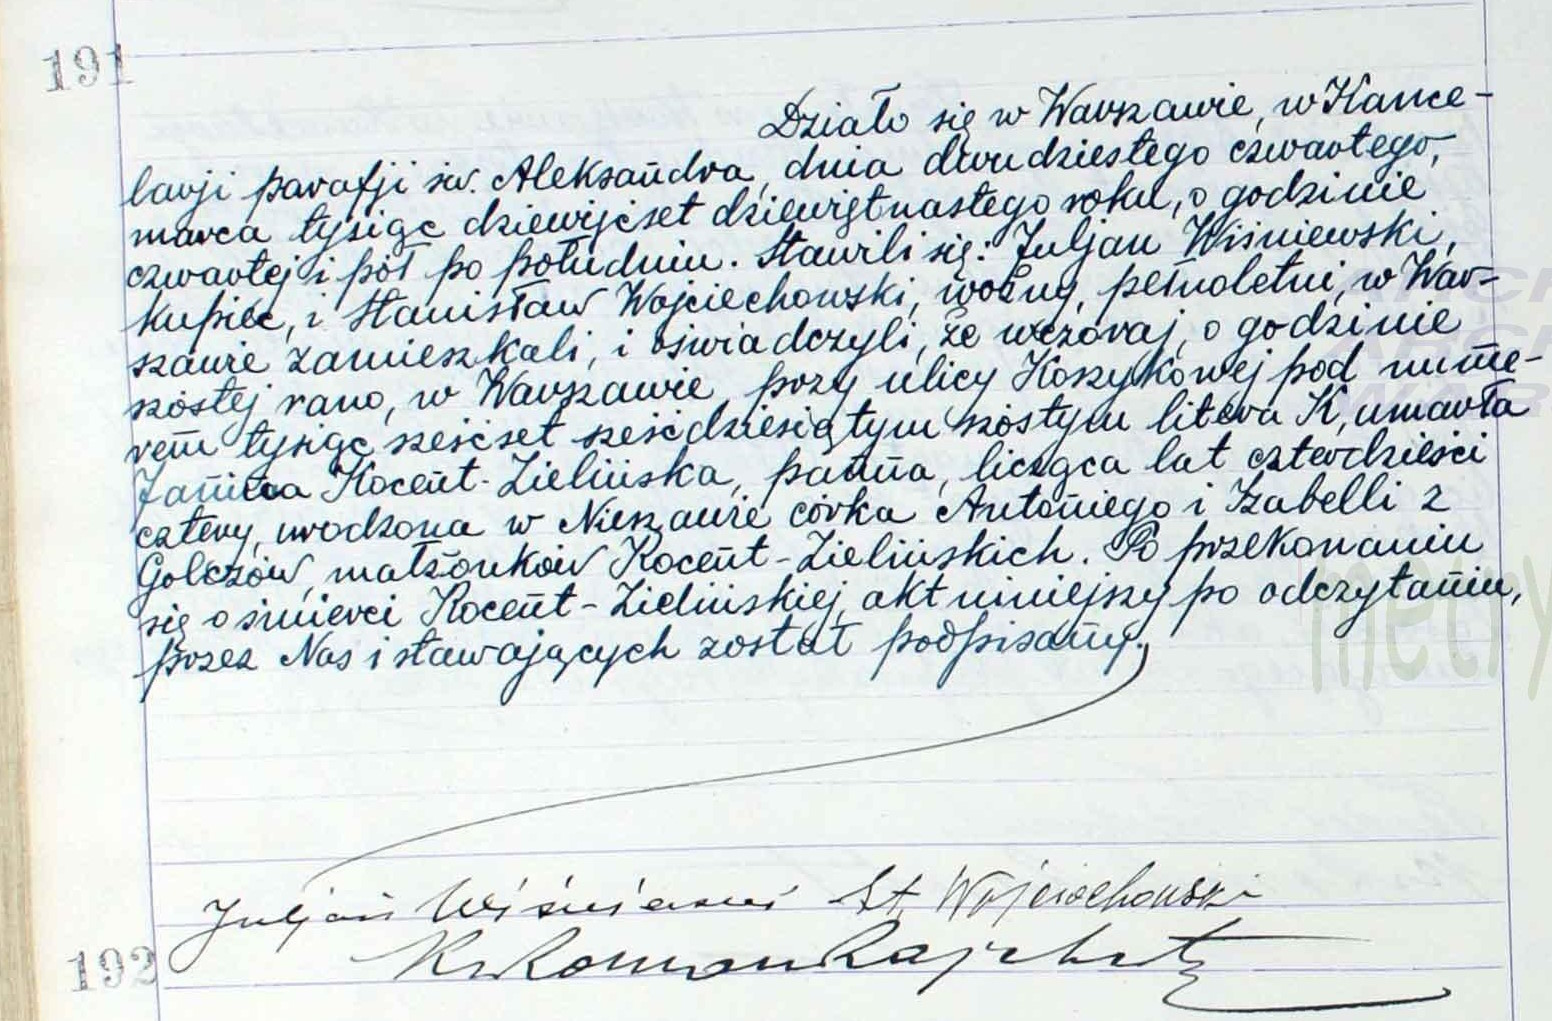 191
Działo się w Warszawie, w Kance-
larji parafji św. Aleksandra, dnia dwudziestego czwartego,
marca tysiąc dziewięćset dziewiętnastego roku, o godzinie
czwartej i pół po południu. Stawili się: Juljan Wiśniewski,
kupiec, i Stanisław Wojciechowski, woźny, pełnoletni, w War-
szawie zamieszkali, i oświadczyli, że wczoraj, o godzinie
szóstej rano, w Warszawie, przy ulicy Koszykowej pod nume-
rem tysiąc sześćset sześćdziesiątym szóstym litera K, umarła
Janina Kocent-Zielińska, panna, licząca lat czterdzieści
cztery, urodzona w Nieszawie, córka Antoniego i Izabelli z
Golczów, małżonków Kocent-Zielińskich. Po przekonaniu
się o śmierci Kocent-Zielińskiej, akt niniejszy po odczytaniu,
przez Nas i stawających został podpisany.
Juljan Wiśniewski St. Wojciechowski
Ks Roman Rajchert
192
metry